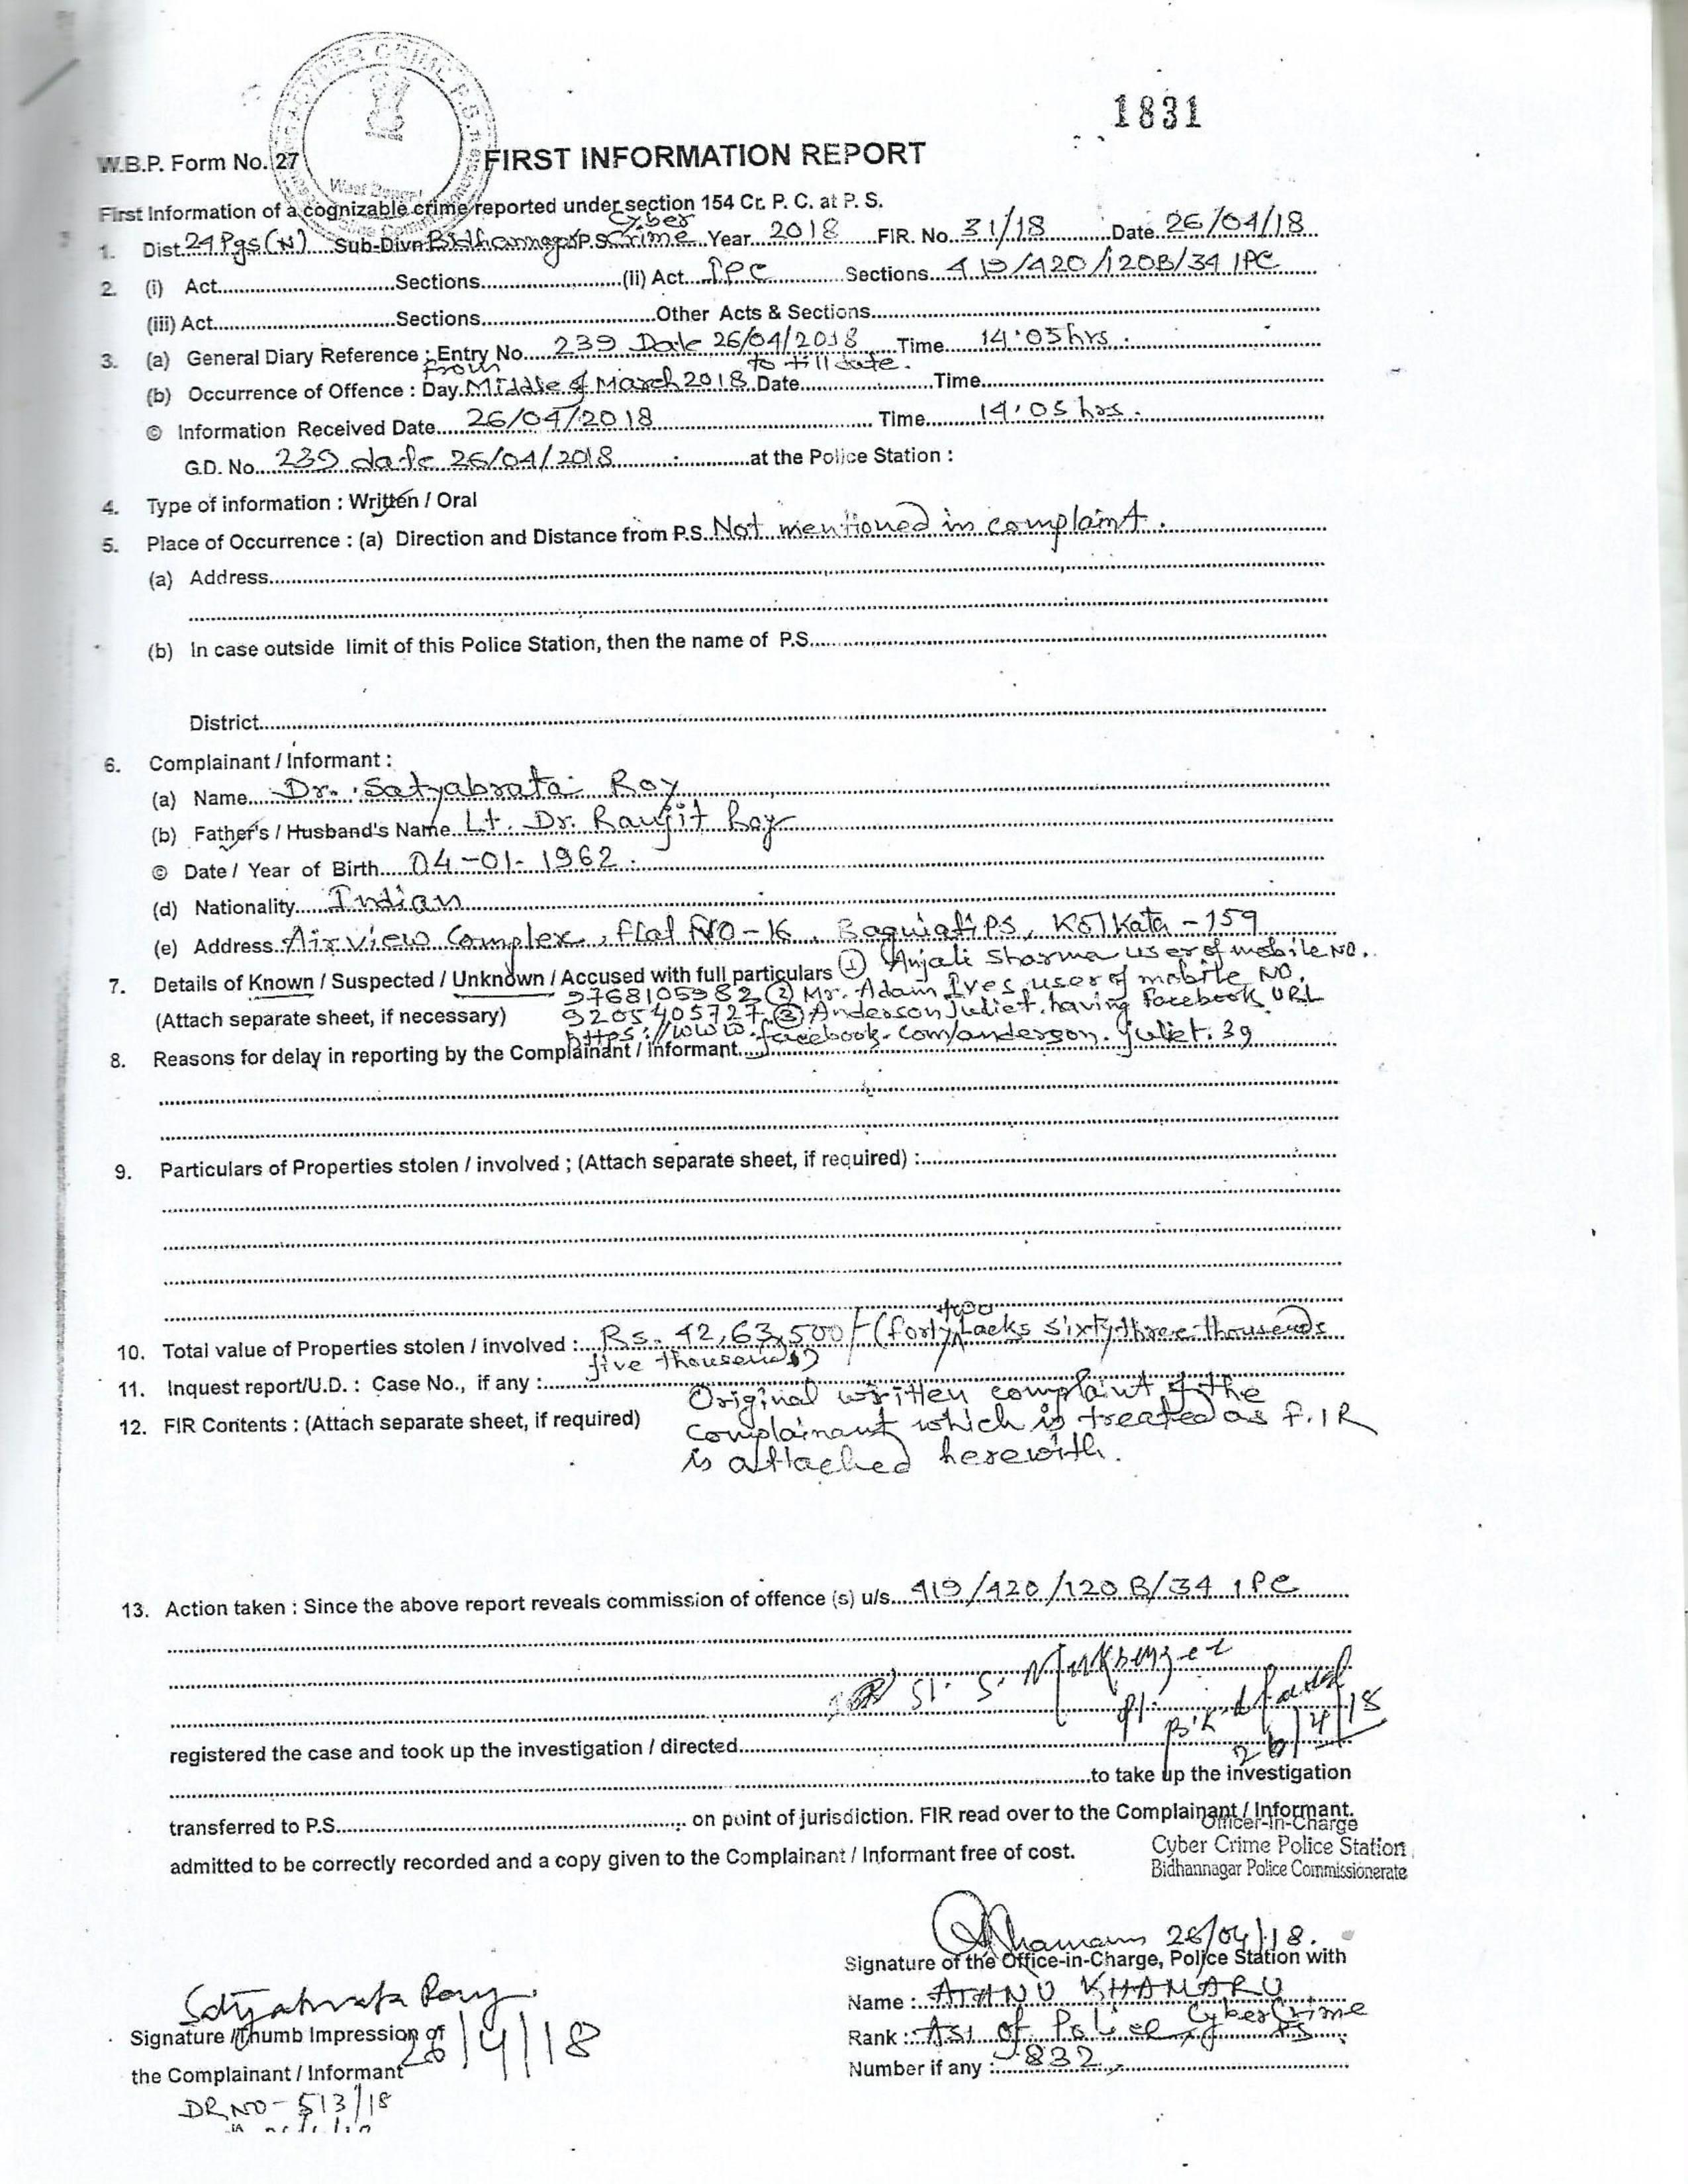 1831
W.B.P. Form No. 27 FIRST INFORMATION REPORT
West Bengal
First Information of a cognizable crime reported under section 154 Cr. P. C. at P. S.
1. Dist. 24 Pgs (N) Sub-Divn Bidhannagar P.S. Cyber Crime Year 2018 FIR. No. 31/18 Date 26/04/18
2. (i) Act Sections (ii) Act IPC Sections 419/420/120B/34 IPC
(iii) Act Sections Other Acts & Sections
3. (a) General Diary Reference : Entry No. 239 Date 26/04/2018 Time 14:05 hrs.
(b) Occurrence of Offence : Day From Middle of March 2018 to till date. Date Time
© Information Received Date 26/04/2018 Time 14:05 hrs.
G.D. No. 239 date 26/04/2018 at the Police Station :
4. Type of information : Written / Oral
5. Place of Occurrence : (a) Direction and Distance from P.S. Not mentioned in complaint.
(a) Address
(b) In case outside limit of this Police Station, then the name of P.S.
District
6. Complainant / Informant :
(a) Name Dr. Satyabrata Roy
(b) Father's / Husband's Name Lt. Dr. Ranjit Roy
© Date / Year of Birth 04-01-1962.
(d) Nationality Indian
(e) Address Airview Complex, flat NO-16, Baguiati PS, Kolkata-159
7. Details of Known / Suspected / Unknown / Accused with full particulars ① Anjali Sharma user of mobile NO.
9768105982 ② Mr. Adam Ives user of mobile NO.
(Attach separate sheet, if necessary) 9205405727 ③ Anderson Juliet having Facebook URL
https://www.facebook.com/anderson.juliet.39
8. Reasons for delay in reporting by the Complainant / Informant
9. Particulars of Properties stolen / involved ; (Attach separate sheet, if required) :
10. Total value of Properties stolen / involved : Rs. 42,63,500/- (forty two Lacks sixty three thousands
five thousends)
11. Inquest report/U.D. : Case No., if any :
12. FIR Contents : (Attach separate sheet, if required) Original written complaint of the
complainant which is treated as F.I R
is attached herewith.
13. Action taken : Since the above report reveals commission of offence (s) u/s 419/420/120B/34 IPC
SI. S. Mukherjee
26/4/18
registered the case and took up the investigation / directed
to take up the investigation
transferred to P.S. on point of jurisdiction. FIR read over to the Complainant / Informant.
admitted to be correctly recorded and a copy given to the Complainant / Informant free of cost.
Officer-in-Charge
Cyber Crime Police Station
Bidhannagar Police Commissionerate
26/04/18.
Signature of the Office-in-Charge, Police Station with
Name : ATANU KHAMARU
Rank : ASI of Police, Cyber Crime PS
Number if any : 832
Satyabrata Roy
Signature / Thumb Impression of
26/4/18
the Complainant / Informant
DR NO - 513/18